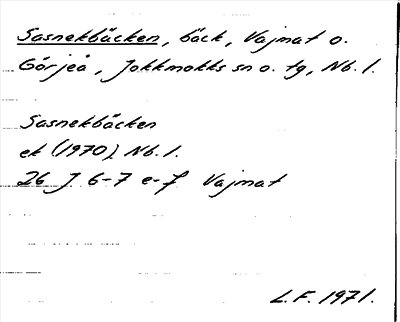 Sasnekbäcken, bäck, Vajmat o.
Görjeå, Jokkmokks sn o. tg, Nb. l.
Sasnekbäcken
ek (1970) Nb. l.
26 J 6-7 e-f Vajmat
L.F. 1971.